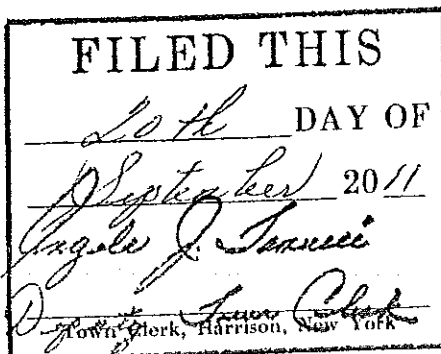 FILED THIS
20th DAY OF
September 2011
Angelo J.
Deputy Town Clerk
Town Clerk, Harrison, New York